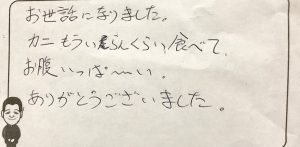 お世話になりました。
カニ もういらんくらい食べて、
お腹いっぱ〜い。
ありがとうございました。